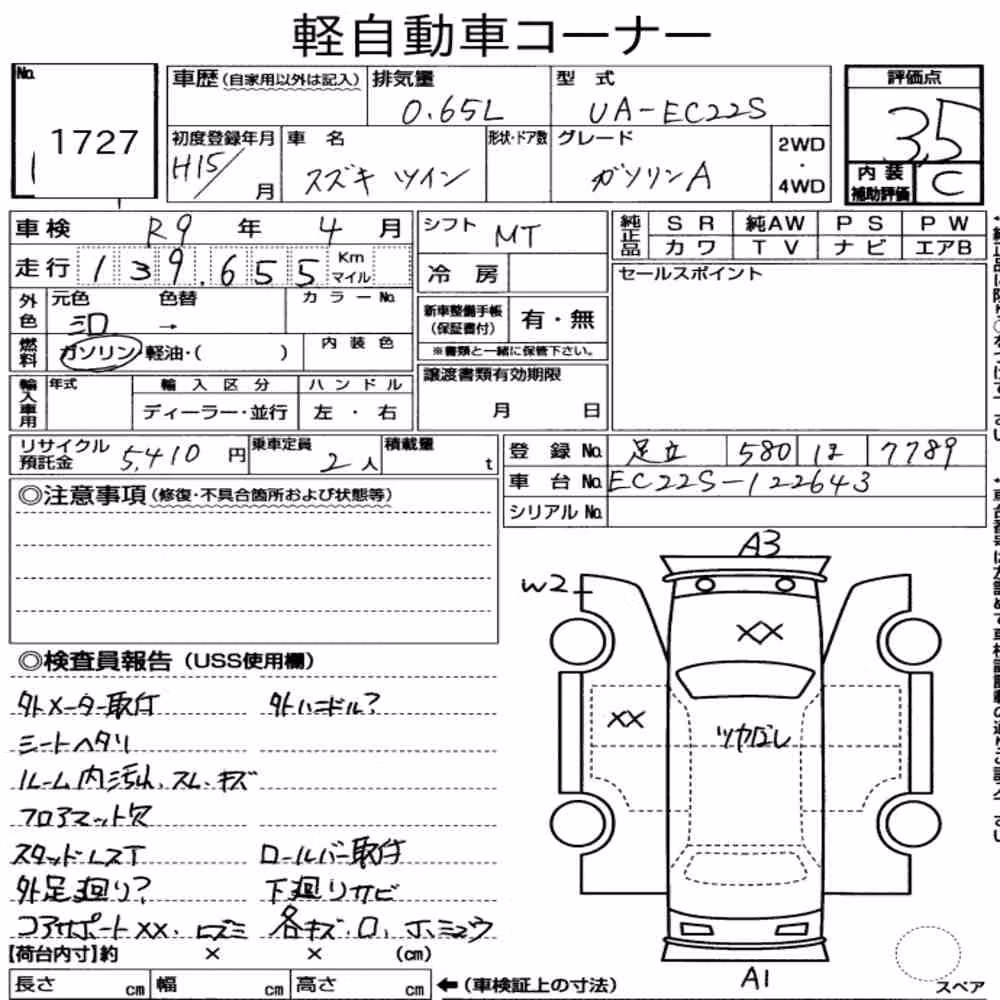 軽自動車コーナー
No.
1727
車歴 (自家用以外は記入)
排気量
0.65L
型 式
UA-EC22S
評価点
3.5
初度登録年月
H15/
月
車 名
スズキ ツイン
形状・ドア数
グレード
ガソリンA
2WD
・
4WD
内 装
補助評価
C
車検 R9 年 4 月
走行 139.655 Km
マイル
シフト
MT
冷 房
純正品
SR 純AW PS PW
カワ TV ナビ エアB
セールスポイント
外色
元色 色替
→
カラーNo.
新車整備手帳
(保証書付)
有・無
※書類と一緒に保管下さい。
燃料
ガソリン・軽油・( )
内装色
輸入車用
年式
輸入区分
ディーラー・並行
ハンドル
左 ・ 右
譲渡書類有効期限
月 日
リサイクル
預託金
5,410 円
乗車定員
2人
積載量
t
登 録 No. 足立 580 ほ 7789
車 台 No. EC22S-122643
シリアル No.
◎注意事項 (修復・不具合箇所および状態等)
◎検査員報告 (USS使用欄)
外メーター取付
外ハンドル?
シートヘタリ
ルーム内汚れ、スレ、キズ
フロアマット欠
スタッドレスT
ロールバー取付
外足廻り?
下廻りサビ
コアサポートXX、ヒズミ
各キズ・ロ、
A3
W2
XX
XX
A1
スペア
【荷台内寸】約 × × (cm)
長さ cm 幅 cm 高さ cm ←(車検証上の寸法)